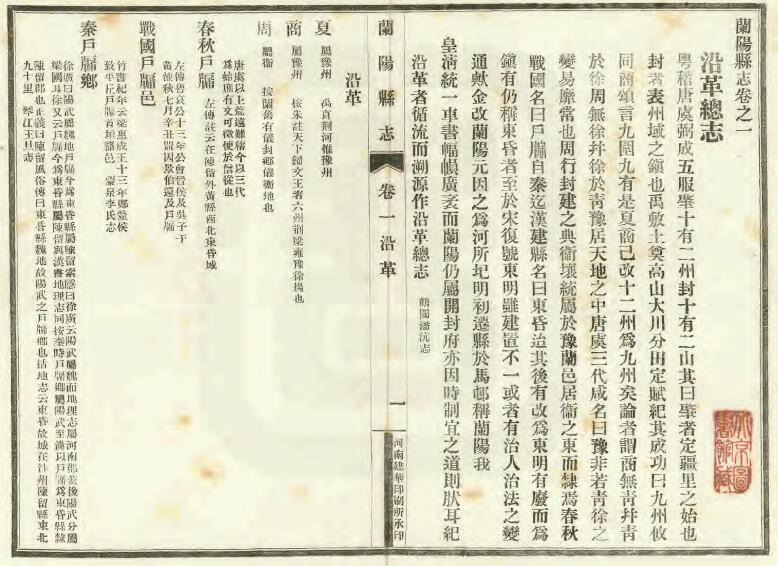 蘭陽縣志卷之一
沿革總志
粵稽唐虞弼成五服肇十有二州封十有二山其曰肇者定疆里之始也
封者表州域之鎮也禹敷土奠高山大川分田定賦紀其成功曰九州攸
同商頌言九圍九有是夏商已改十二州爲九州矣論者謂商無青幷青
於徐周無徐幷徐於青豫居天地之中唐虞三代咸名曰豫非若青徐之
變易靡常也周行封建之典衞壤統屬於豫蘭邑居衞之東而隸焉春秋
戰國名曰戶牖自秦迄漢建縣名曰東昏迨其後有改爲東明有廢而爲
鎮有仍稱東昏者至於宋復號東明雖建置不一或者有治人治法之變
通歟金改蘭陽元因之爲河所圮明初遷縣於馬邨稱蘭陽我
皇淸統一車書幅幀廣袤而蘭陽仍屬開封府亦因時制宜之道則狀耳紀
沿革者循流而溯源作沿革總志
蘭陽縣志
卷一沿革
一
河南建華印刷所承印
沿革
夏
屬豫州 禹貢荆河惟豫州
商
屬豫州 按朱註天下歸文王者六州荆梁雍豫徐揚也
周
屬衞 按蘭舊有儀封鄉儀衞地也
唐虞以上荒遠難稽今以三代
爲始庶有文可徵便於信從也
春秋戶牖
左傳註云在陳留外黃縣西北東昏城
左傳魯哀公十三年公會晉侯及吳子于
黃池秋七月辛丑盟囚景伯還及戶牖
戰國戶牖邑
竹書紀年云梁惠成王十三年鄭釐侯
致平丘戶牖首垣諸邑
秦戶牖鄉
徐廣曰陽武魏地戶牖今爲東昏縣屬陳留索隱曰徐廣云陽武屬魏而地理志屬河南郡蓋後陽武分屬
梁國耳徐又云戶牖今爲東昏縣屬陳留與漢書地理志同按秦時戶牖鄉屬陽武至漢以戶牖爲東昏縣隸
陳留郡也正義曰陳留風俗傳曰東昏縣魏地故陽武之戶牖鄉也括地志云東昏故城在汴州陳留縣東北
九十里